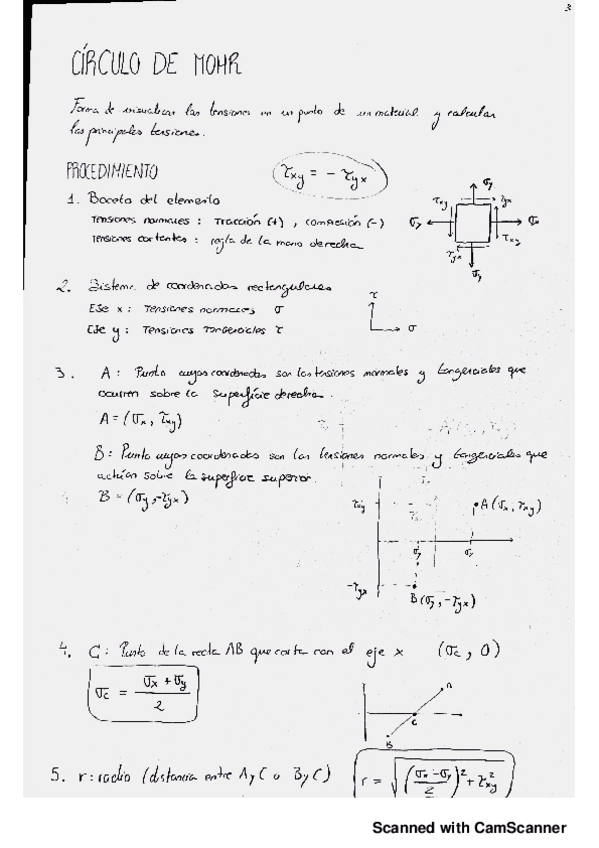 3
CÍRCULO DE MOHR
Forma de visualizar las tensiones en un punto de un material y calcular
las principales tensiones.
PROCEDIMIENTO
τxy = - τyx
1. Boceto del elemento
Tensiones normales : Tracción (+) , compresión (-)
Tensiones cortantes : regla de la mano derecha
σy
τxy τyx
σy σx
τyx τxy
σy
2. Sistema de coordenadas rectangulares
Eje x : Tensiones normales σ
Eje y : Tensiones Tangenciales τ
τ
σ
3. A : Punto cuyas coordenadas son las tensiones normales y tangenciales que
ocurren sobre la superficie derecha.
A = (σx , τxy)
B : Punto cuyas coordenadas son las tensiones normales y tangenciales que
actúan sobre la superficie superior.
B = (σy, -τyx)
τxy
A (σx, τxy)
σy σx
-τyx
B (σy, -τyx)
4. C : Punto de la recta AB que corta con el eje x (σc, 0)
σc = σx + σy / 2
A
C
B
5. r : radio (distancia entre A y C o B y C)
r = √((σx - σy / 2)² + τ²xy)
Scanned with CamScanner